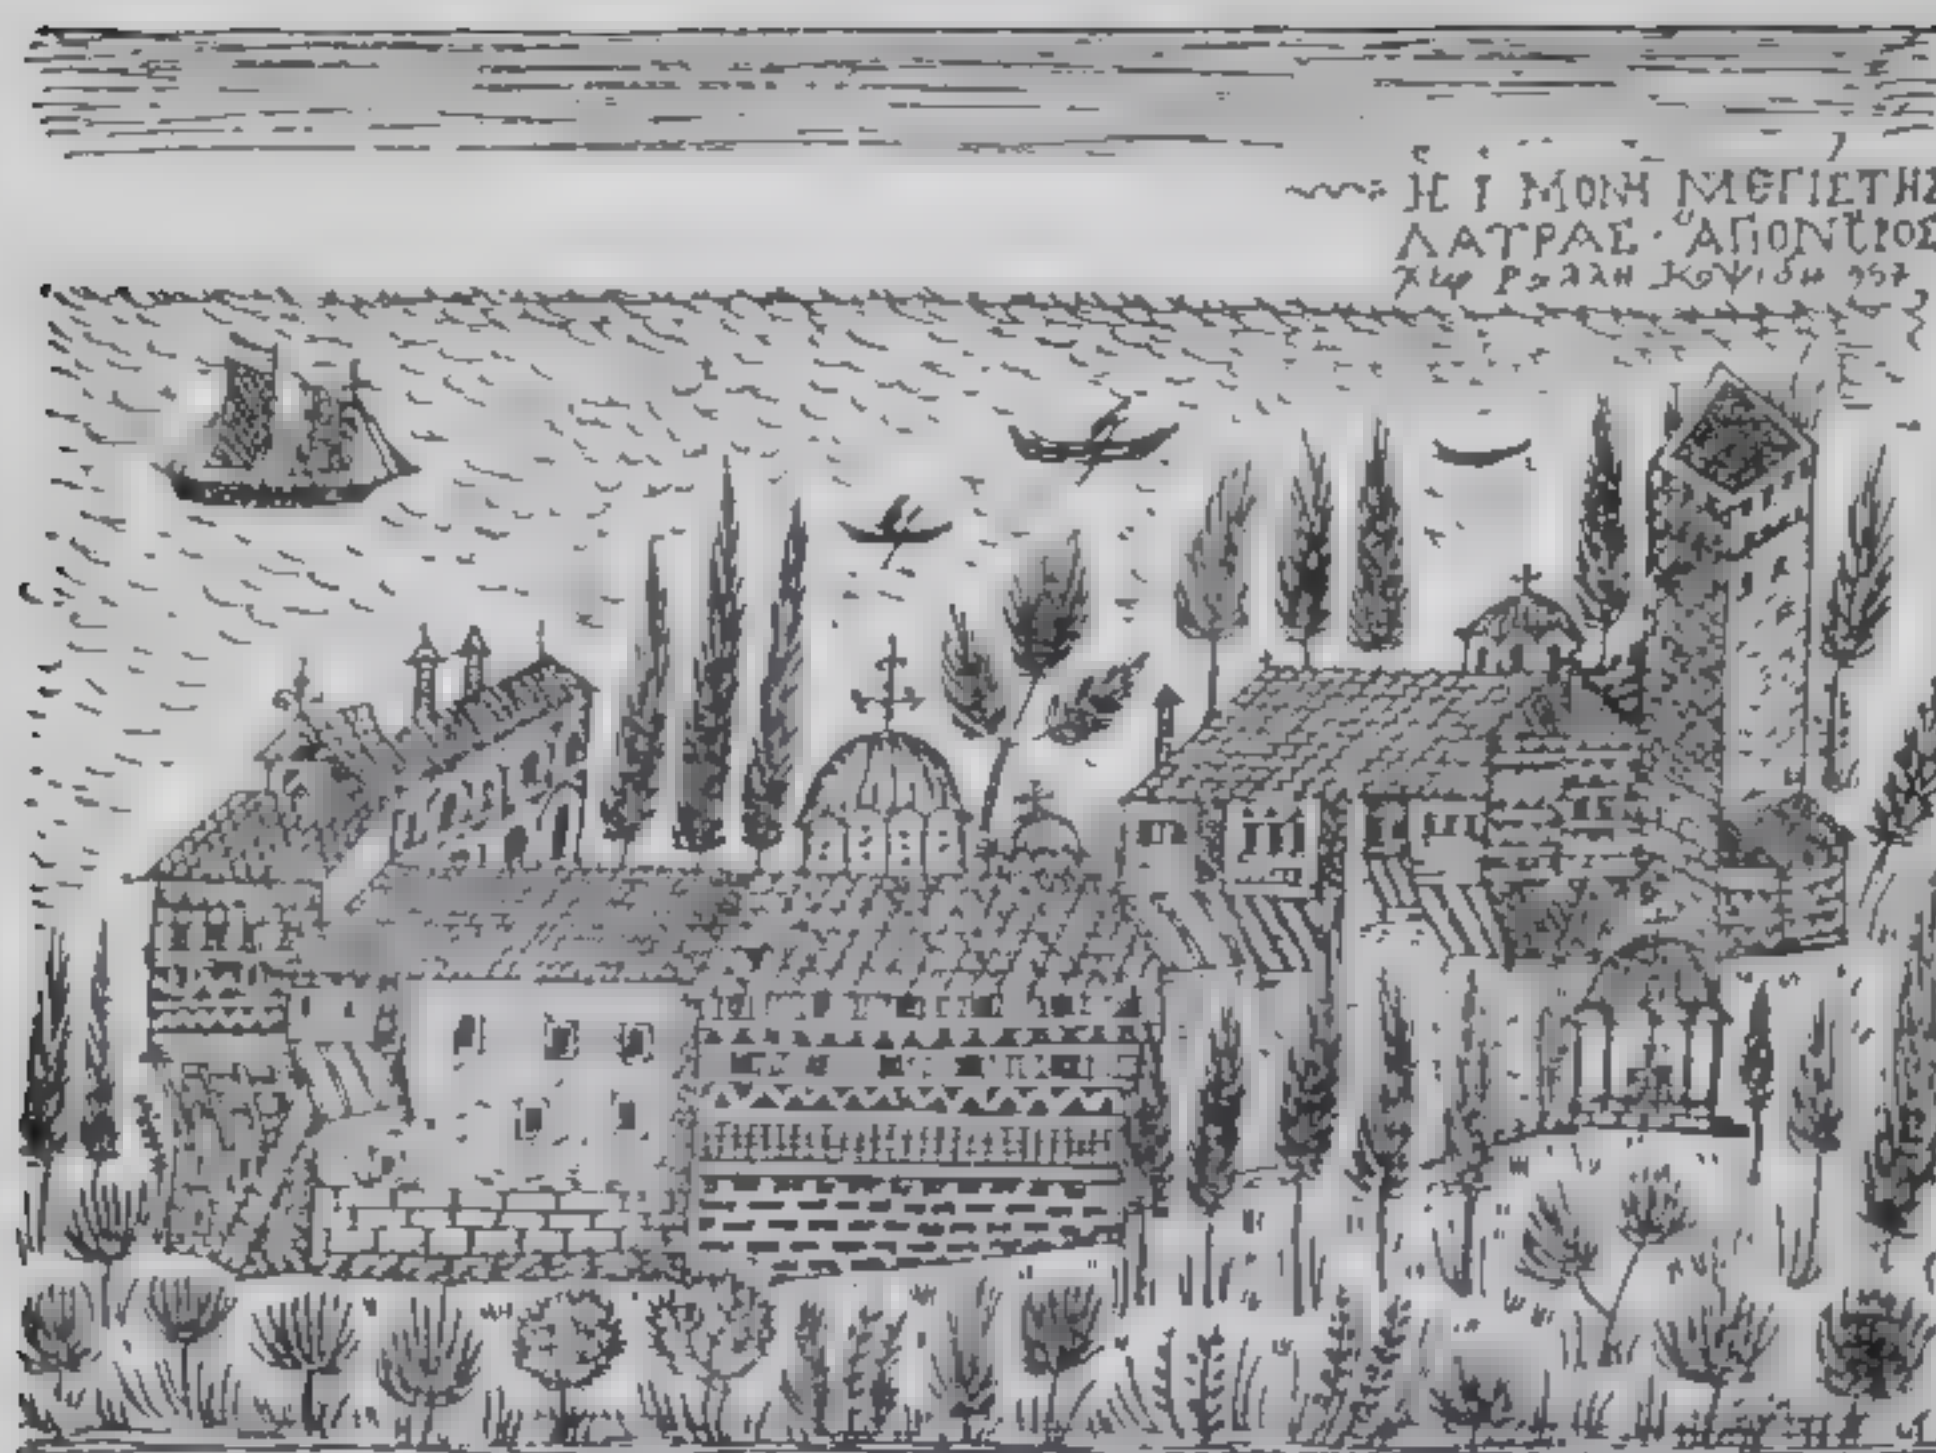 Η Ι ΜΟΝΗ ΜΕΓΙΣΤΗΣ
ΛΑΥΡΑΣ · ΑΓΙΟΝ ΟΡΟΣ
χειρ Ραλλη Κοψιδη 957